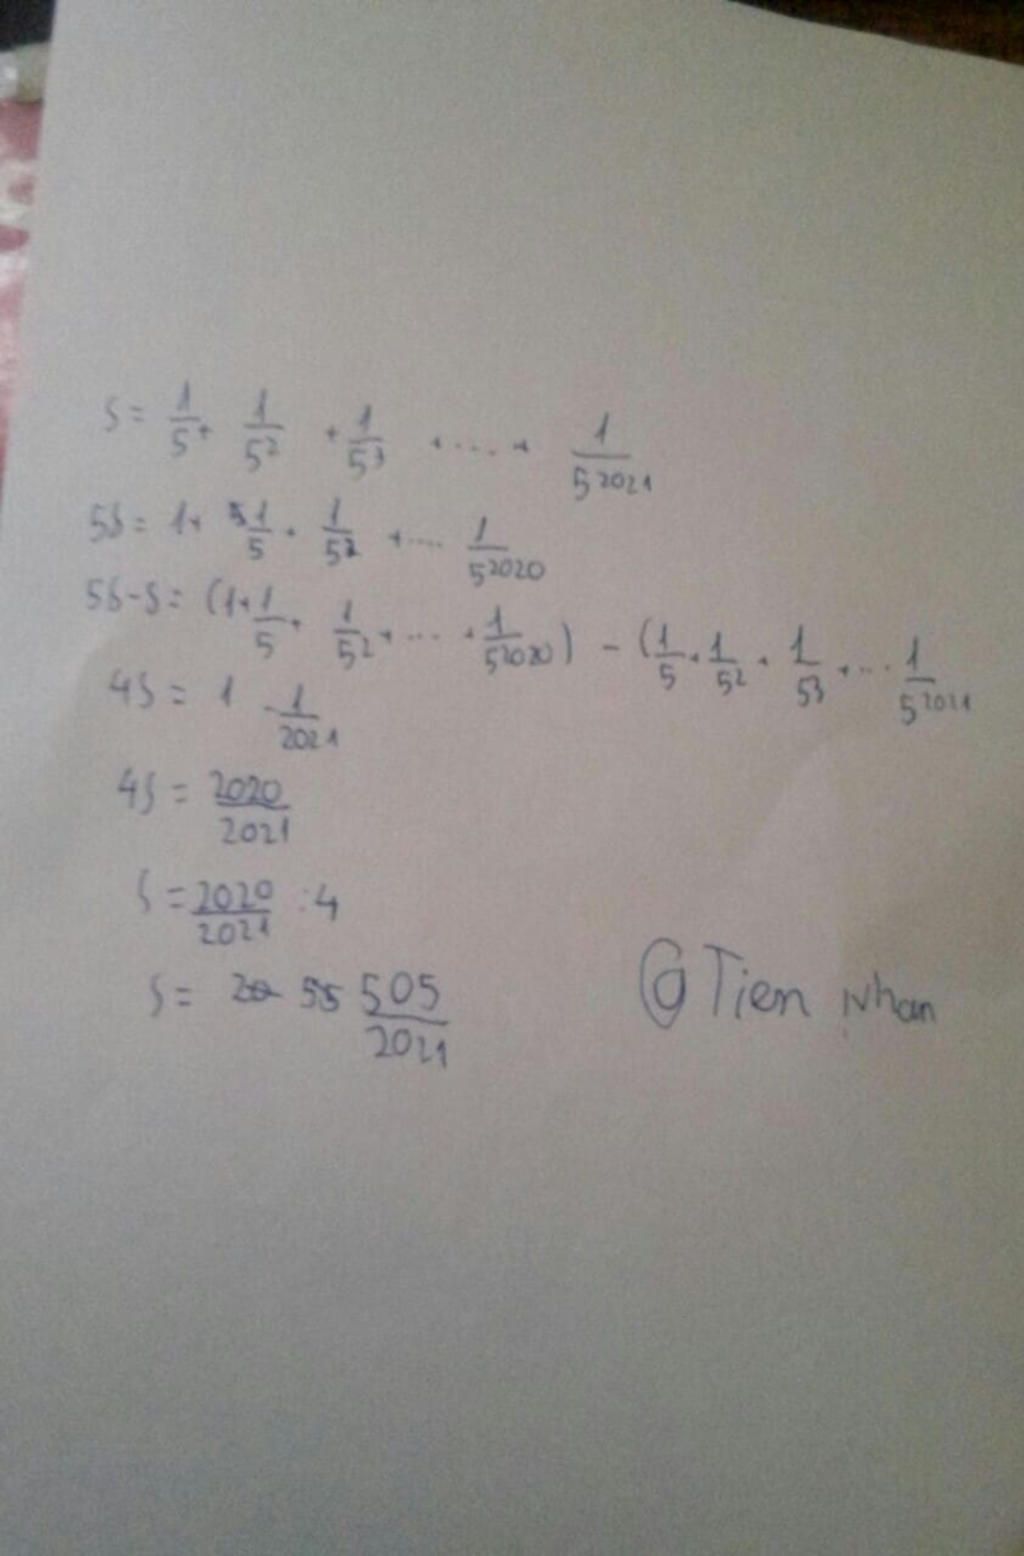 S = 1/5 + 1/5² + 1/5³ + .... + 1/5²⁰²¹
5S = 1 + 1/5 + 1/5² + .... 1/5²⁰²⁰
5S - S = (1 + 1/5 + 1/5² + ... + 1/5²⁰²⁰) - (1/5 + 1/5² + 1/5³ + ... 1/5²⁰²¹
4S = 1 - 1/2021
4S = 2020/2021
S = 2020/2021 : 4
S = 505/2021
@Tien Nhan